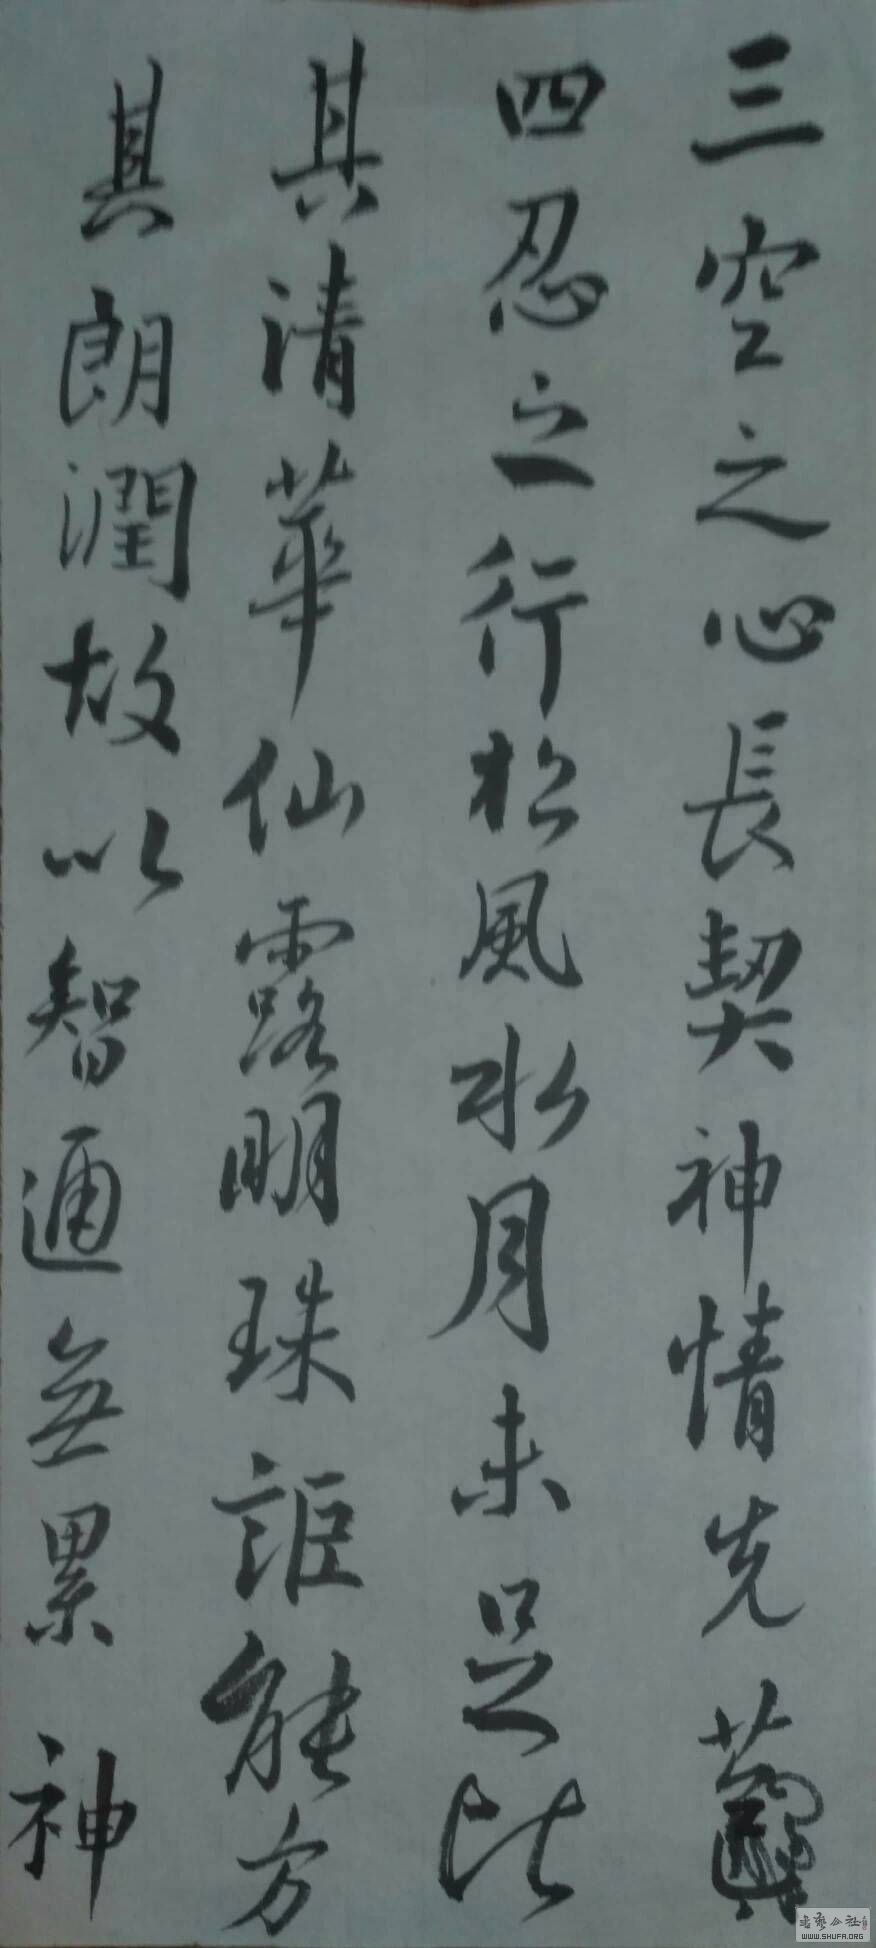 三空之心長契神情先
四忍之行松風水月未足比
其清華仙露明珠詎能方
其朗潤故以智通無累神
書藝公社
WWW.SHUFA.ORG